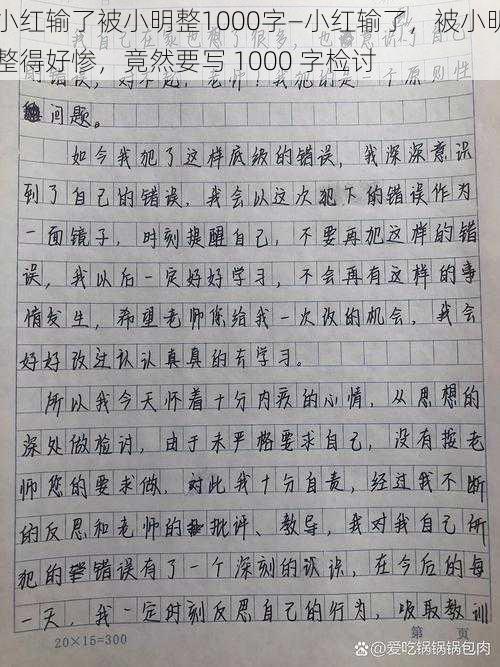 小红输了被小明整1000字—小红输了，被小明
整得好惨，竟然要写 1000 字检讨
问题。
如今我犯了这样底级的错误，我深深意识
到了自己的错误，我会以这次犯下的错误作为
一面镜子，时刻提醒自己，不要再犯这样的错
误，我以后一定好好学习，不会再有这样的事
情发生，希望老师您给我一次改的机会，我会
好好改过认认真真的去学习。
所以我今天怀着十分内疚的心情，从思想的
深处做检讨，由于未严格要求自己，没有按老
师您的要求做，对此我十分自责，经过我不断
的反思和老师的批评、教导，我对我自己所
犯的错误有了一个深刻的认识，在今后的每
一天，我一定时刻反思自己的行为，吸取教训
20×15=300
第 页
@爱吃锅锅锅包肉